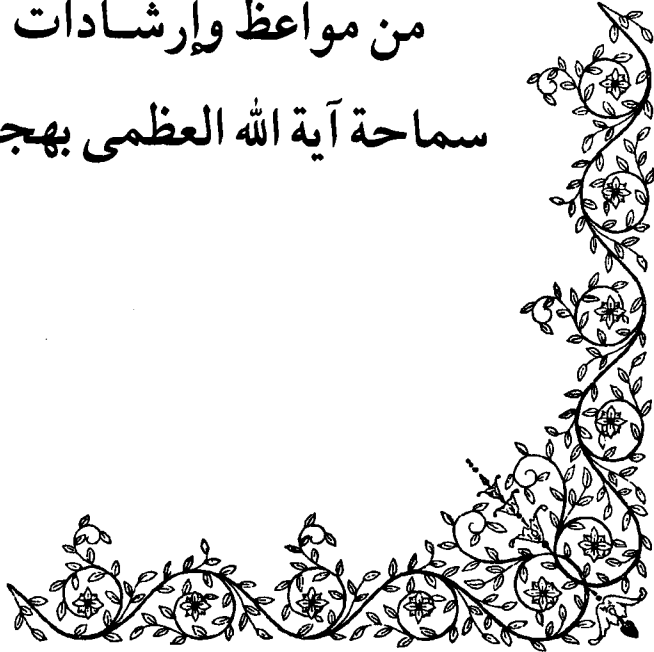 من مواعظ وإرشادات
سماحة آية الله العظمى